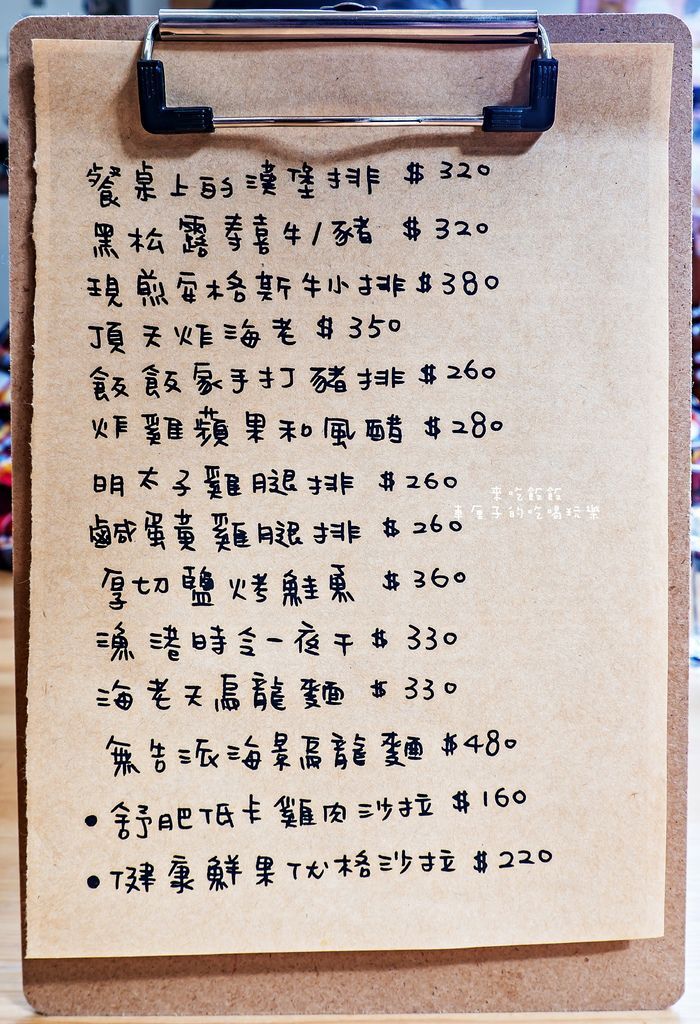 餐桌上的漢堡排 $320
黑松露壽喜牛/豬 $320
現煎安格斯牛小排 $380
頂天炸海老 $350
飯飯家手打豬排 $260
炸雞蘋果和風醋 $280
明太子雞腿排 $260
來吃飯飯
車厘子的吃喝玩樂
鹹蛋黃雞腿排 $260
厚切鹽烤鮭魚 $360
漁港時令一夜干 $330
海老天烏龍麵 $330
無告派海景烏龍麵 $480
•舒肥低卡雞肉沙拉 $160
•健康鮮果优格沙拉 $220